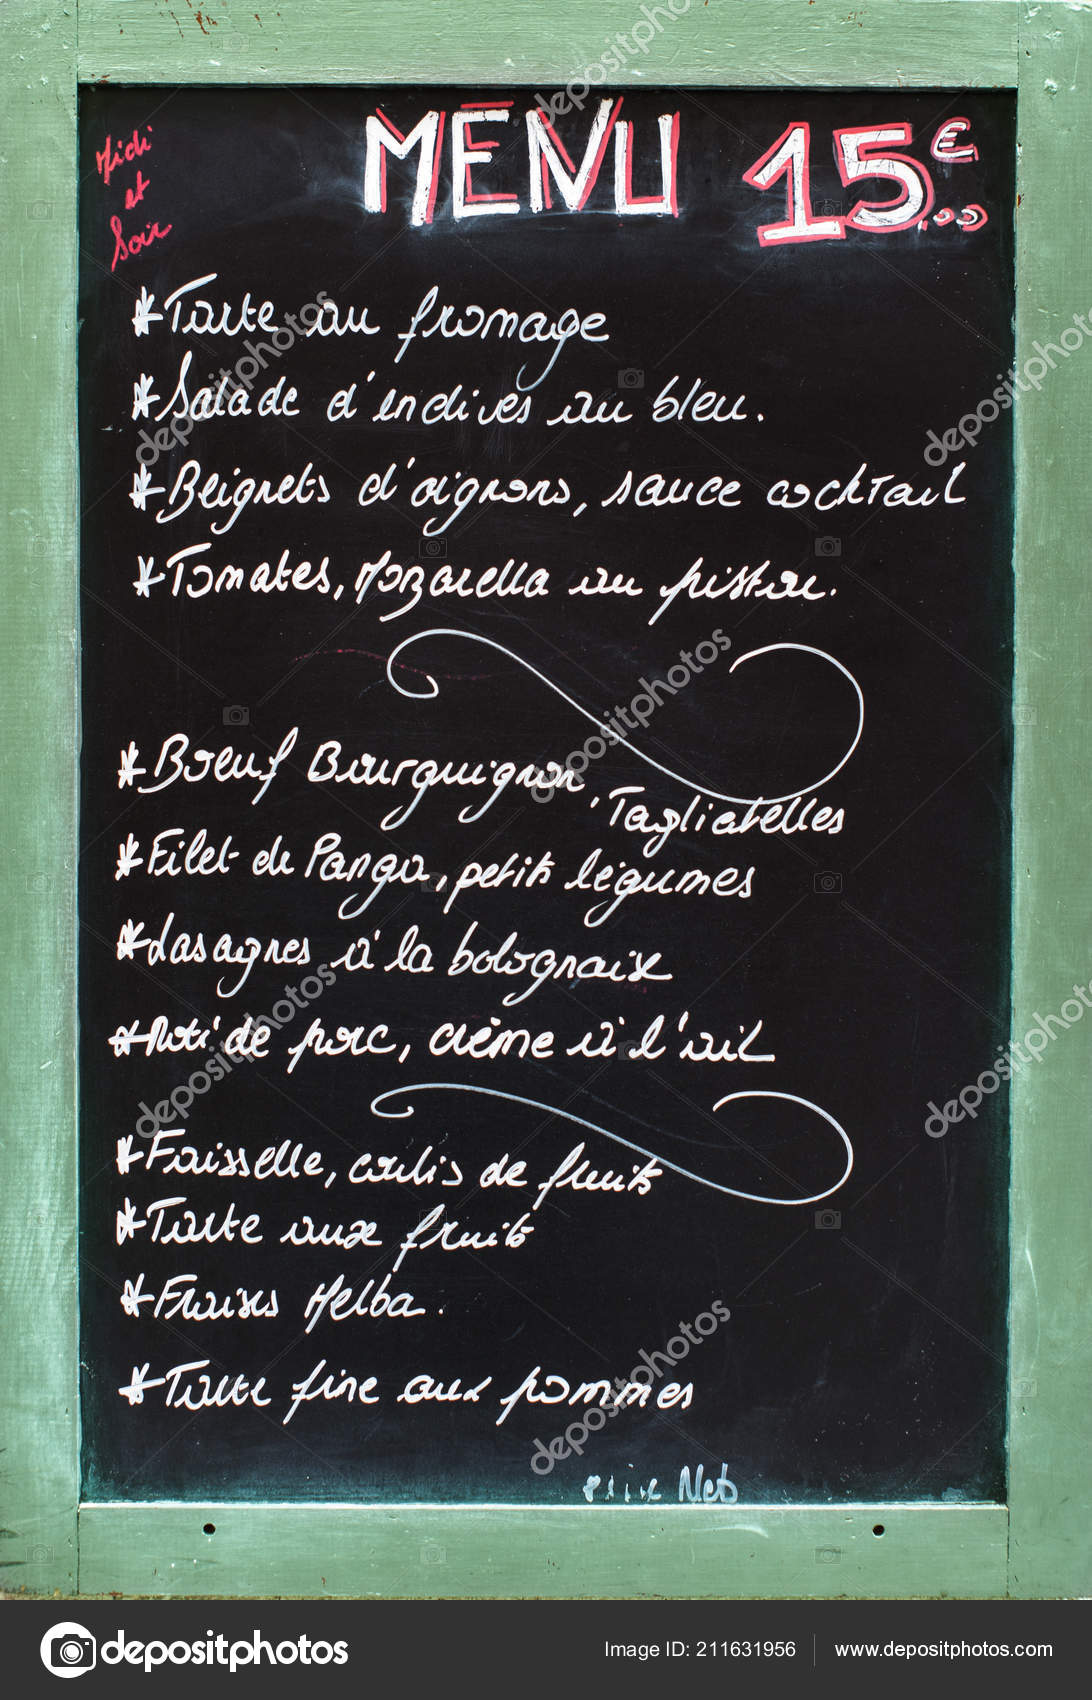 Midi
et
Soir
MENU 15€
*Tarte au fromage
*Salade d'endives au bleu.
*Beignets d'oignons, sauce cocktail
*Tomates, Mozarella au pistou.
*Boeuf Bourguignon, Tagliatelles
*Filet de Panga, petits légumes
*Lasagnes à la bolognaise
*Roti de porc, crème à l'ail
*Faisselle, coulis de fruits
*Tarte aux fruits
*Fraises Melba.
*Tarte fine aux pommes
Net
depositphotos
Image ID: 211631956
www.depositphotos.com